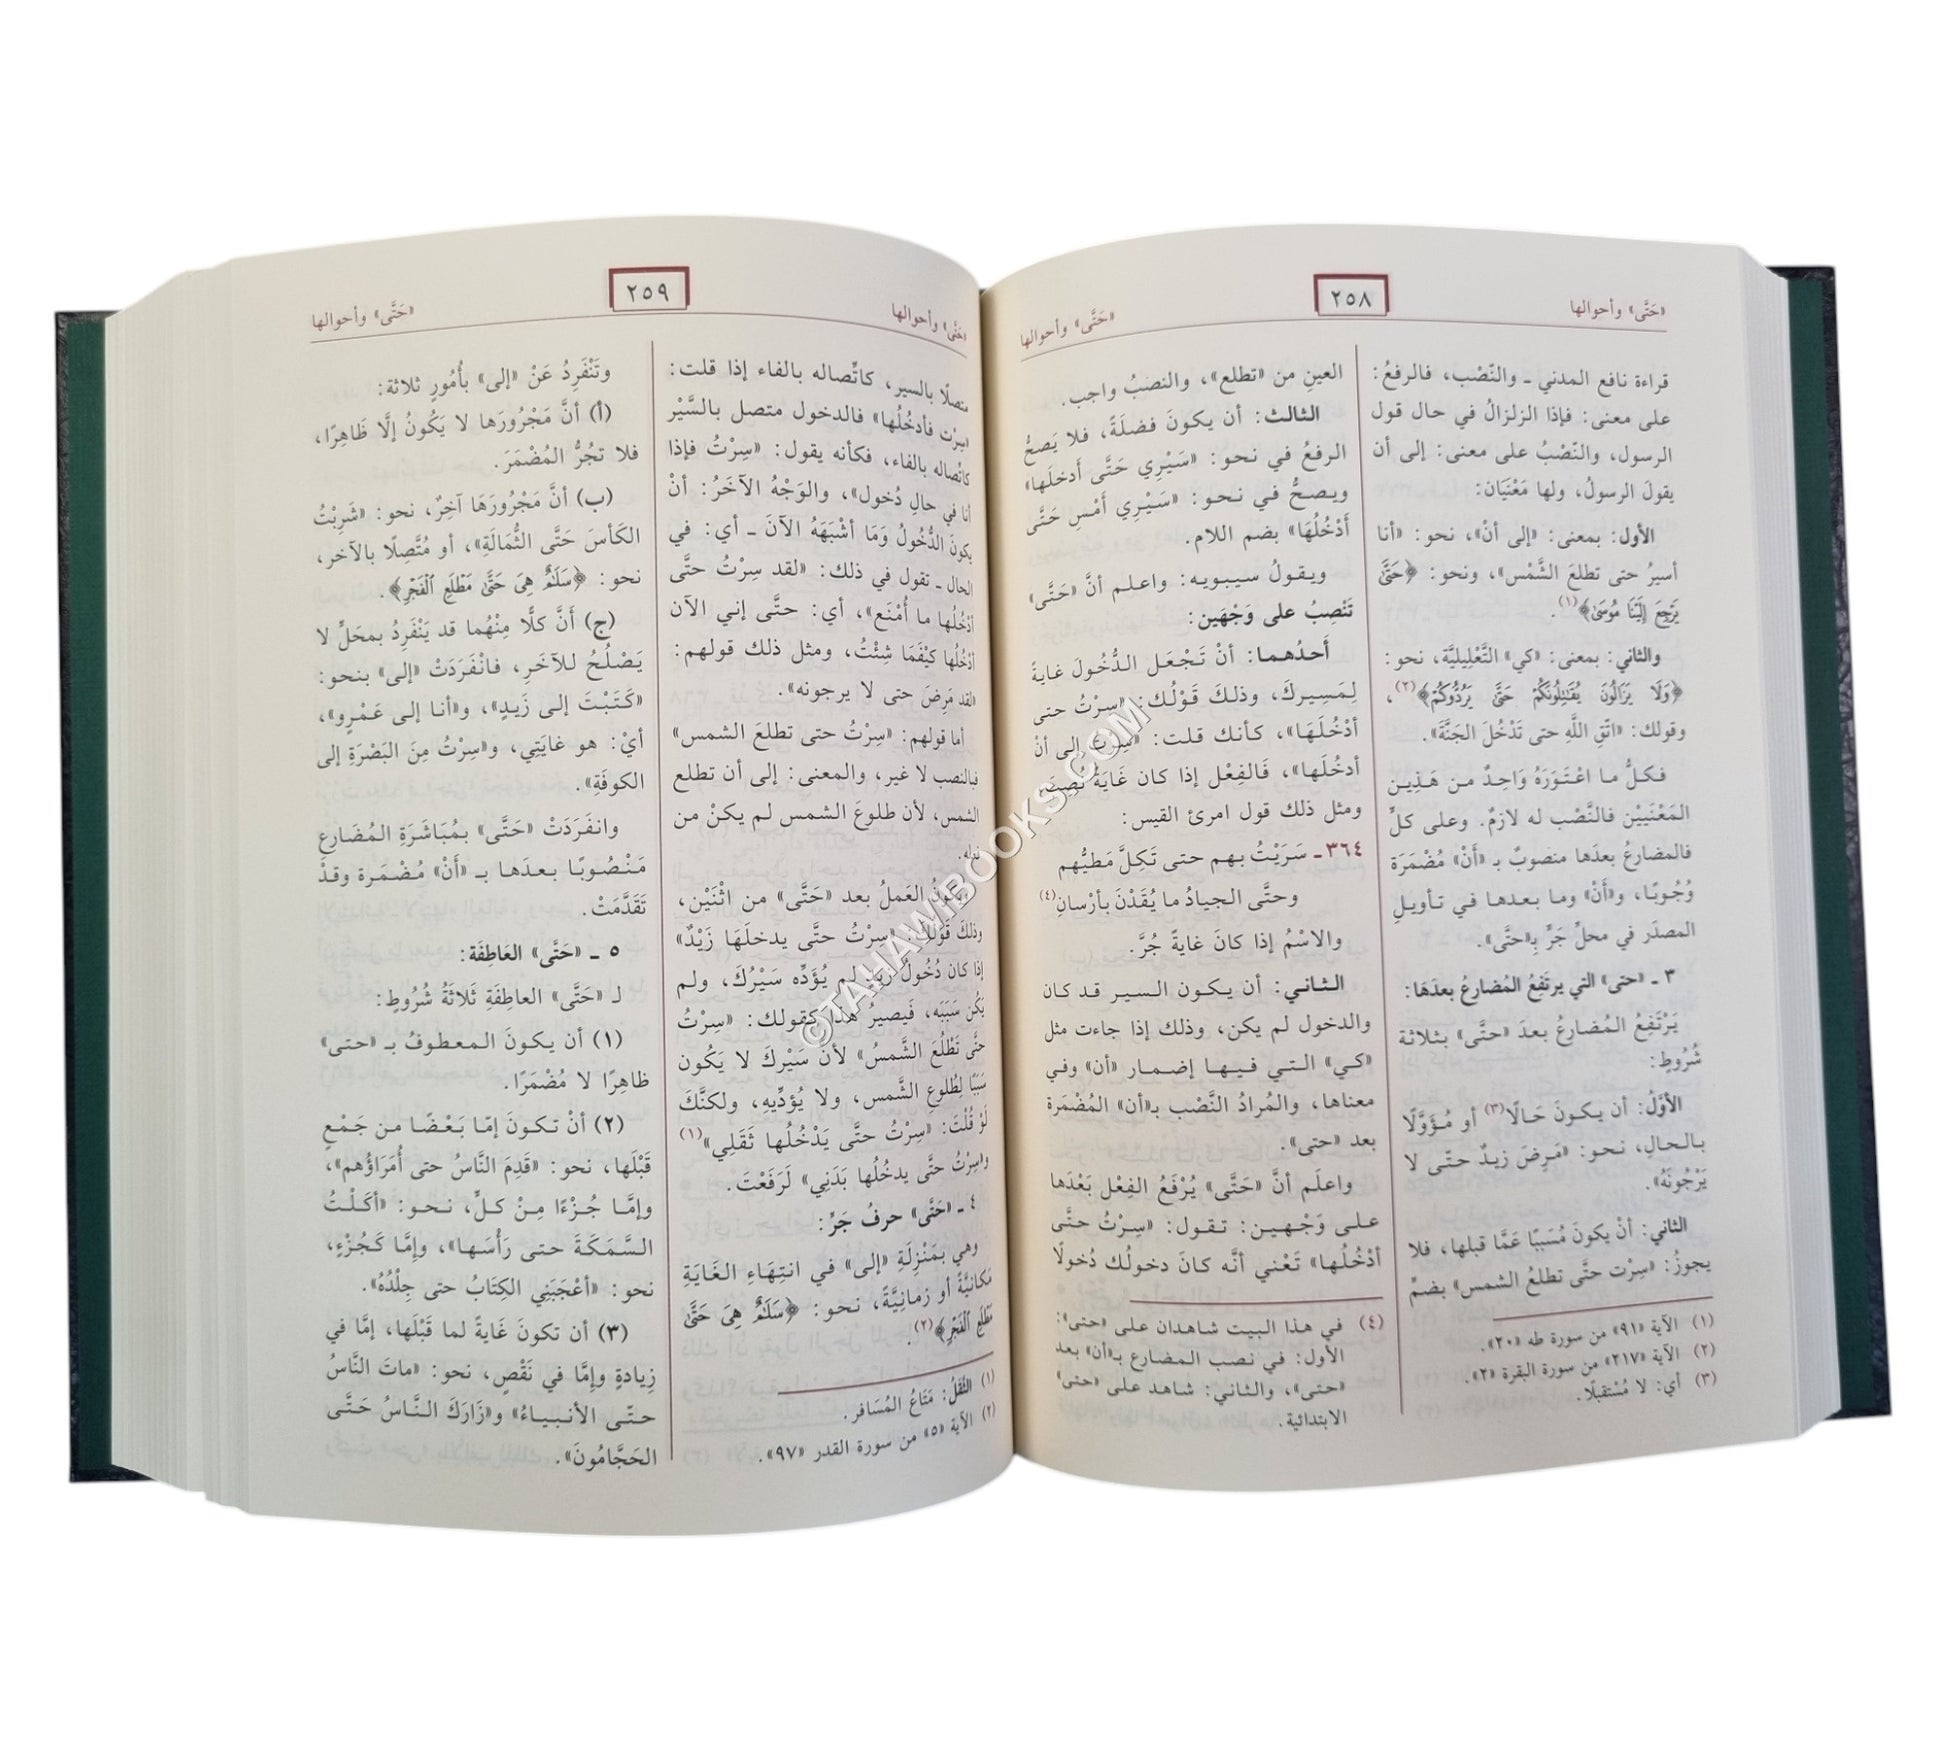 «حَتَّى» وأحوالها
٢٥٨
«حَتَّى» وأحوالها
قراءة نافع المدني ـ والنّصْب، فالرفعُ:
على معنى: فإذا الزلزالُ في حال قول
الرسول، والنّصْبُ على معنى: إلى أن
يقولَ الرسولُ، ولها مَعْنَيَان:
الأول: بمعنى: «إلى أنْ»، نحو: «أنا
أسيرُ حتى تطلعَ الشَّمْس»، ونحو: ﴿حَتَّىٰ
يَرْجِعَ إِلَيْنَا مُوسَىٰ﴾(١).
والثاني: بمعنى: «كي» التَّعْلِيليَّة، نحو:
﴿وَلَا يَزَالُونَ يُقَٰتِلُونَكُمْ حَتَّىٰ يَرُدُّوكُمْ﴾(٢)،
وقولك: «اتّقِ اللَّهِ حتى تَدْخُلَ الجَنَّةَ».
فكلُّ ما اعْتَوَرَهُ وَاحِدٌ من هَذِين
المَعْنَيَيْن فالنَّصْب له لازمٌ. وعلى كلِّ
فالمضارعُ بعدَها منصوبٌ بـ «أَنْ» مُضْمَرَة
وُجُوبًا، و«أَنْ» وما بعدها في تأويلِ
المصدَر في محلِّ جَرٍّ بِـ«حتَّى».
٣ ـ «حتى» التي يرتَفِعُ المُضارعُ بعدَهَا:
يَرْتَفِعُ المُضارعُ بعدَ «حتَّى» بثلاثة
شُرُوطٍ:
الأوَّلُ: أن يكونَ حَالًا(٣) أو مُؤَوَّلًا
بالحالِ، نحو: «مَرِضَ زيدٌ حتّى لا
يَرْجُونَهُ».
الثاني: أنْ يكونَ مُسَبَبًا عَمَّا قبلها، فلا
يجوزُ: «سِرْت حتَّى تطلعُ الشمس» بضمِّ
(١) الآية «٩١» من سورة طه «٢٠».
(٢) الآية «٢١٧» من سورة البقرة «٢».
(٣) أي: لا مُسْتَقبلًا.
العينِ من «تطلع»، والنصْبُ واجب.
الثالث: أن يكونَ فضلَةً، فلا يَصحُّ
الرفعُ في نحو: «سَيْرِي حَتَّى أَدخلَها»
ويصحُّ في نحو: «سَيْرِي أَمْسِ حَتَّى
أَدْخُلُهَا» بضم اللام.
ويقولُ سيبويه: واعلم أنَّ «حَتَّى»
تَنْصِبُ على وَجْهَين:
أَحدُهما: أنْ تَجْعَل الدُّخُولَ غايةً
لِمَسِيرِكَ، وذلكَ قَوْلُكَ: «سِرْتُ حتى
أدْخُلَهَا»، كأنك قلت: «سِرْتُ إلى أنْ
أدخُلَها»، فَالفِعْل إذا كان غَايَةً نُصِبَ،
ومثل ذلك قول امرئ القيس:
٣٦٤ـ سَرَيْتُ بهم حتى تَكِلَّ مَطيُّهم
وحتَّى الجيادُ ما يُقَدْنَ بأرْسانِ(٤)
والاسْمُ إذا كانَ غايةً جُرَّ.
الثاني: أن يكون السير قد كان
والدخول لم يكن، وذلك إذا جاءت مثل
«كي» التي فيها إضمار «أن» وفي
معناها، والمُرادُ النَّصْب بـ«أن» المُضْمَرة
بعد «حتى».
واعلَم أنَّ «حَتَّى» يُرْفَعُ الفِعْل بَعْدَها
على وَجْهين: تقول: «سِرْتُ حتَّى
أدْخُلُها» تَعْني أنَّه كانَ دخولُك دُخولًا
(٤) في هذا البيت شاهدان على «حتى»:
الأول: في نصب المضارع بـ«أن» بعد
«حتى»، والثاني: شاهد على «حتى»
الابتدائية.
«حَتَّى» وأحوالها
٢٥٩
«حَتَّى» وأحوالها
متصلًا بالسير، كاتِّصاله بالفاء إذا قلت:
«سِرْت فأدخُلُها» فالدخول متصل بالسَّيْر
كاتْصاله بالفاء، فكأنه يقول: «سِرْتُ فإذا
أنا في حالِ دُخول»، والوَجْهُ الآخَرُ: أنْ
يكونَ الدُّخُولُ وَمَا أشْبَهَهُ الآنَ ـ أي: في
الحال ـ تقول في ذلك: «لقد سِرْتُ حتَّى
أدْخُلُها ما أُمْنَع»، أي: حتَّى إني الآن
أدْخُلُها كَيْفَمَا شِئْتُ، ومثل ذلك قولهم:
«لقد مَرِضَ حتى لا يرجونه».
أما قولهم: «سِرْتُ حتى تطلعَ الشمس»
فبالنصب لا غير، والمعنى: إلى أن تطلع
الشمس، لأن طلوعَ الشمس لم يكنْ من
فعله.
ويكونُ العَملُ بعد «حَتَّى» من اثْنَيْن،
وذلكَ قَوْلُكَ: «سِرْتُ حتَّى يدخلَهَا زَيْدٌ»
إذا كان دُخُولُ زيدٍ لم يُؤَدِّه سَيْرُكَ، ولم
يكُن سَبَبَه، فَيصيرُ هذا كقولك: «سِرْتُ
حتَّى تَطْلُعَ الشَّمسُ» لأن سَيْرَكَ لا يَكُون
سَبَبًا لِطُلوعِ الشَّمس، ولا يُؤدِّيهِ، ولكنَّكَ
لَوْ قُلْتَ: «سِرْتُ حتَّى يَدْخُلُها ثَقَلِي»(١)
و«سِرْتُ حتَّى يدخُلُها بَدَنِي» لَرَفَعْتَ.
٤ ـ «حَتَّى» حرفُ جَرّ:
وهي بمَنْزِلَةِ «إلى» في انتِهَاءِ الغَايَةِ
مَكانيَّةً أو زمانِيَّةً، نحو: ﴿سَلَٰمٌ هِىَ حَتَّىٰ
مَطْلَعِ ٱلْفَجْرِ﴾(٢).
(١) الثَّقَلُ: مَتَاعُ المُسَافر.
(٢) الآية «٥» من سورة القدر «٩٧».
وتَنْفَرِدُ عَنْ «إلى» بأُمُورٍ ثلاثة:
(أ) أنَّ مَجْرُورَها لا يَكُونُ إلَّا ظَاهِرًا،
فلا تجُرُّ المُضْمَرَ.
(ب) أنَّ مَجْرُورَهَا آخِرٌ، نحو: «شَرِبْتُ
الكَأسَ حَتَّى الثُّمَالَةِ»، أو مُتَّصِلًا بالآخر،
نحو: ﴿سَلَٰمٌ هِىَ حَتَّىٰ مَطْلَعِ ٱلْفَجْرِ﴾.
(ج) أَنَّ كلًّا مِنْهُما قد يَنْفَرِدُ بمحَلٍّ لا
يَصْلُحُ للآخَرِ، فانْفَرَدَتْ «إلى» بنحو:
«كَتَبْتَ إلى زَيدٍ»، و«أنا إلى عَمْرٍو»،
أيْ: هو غايَتِي، و«سِرْتُ مِنَ البَصْرَةِ إلى
الكوفَةِ».
وانفَرَدَتْ «حَتَّى» بمُبَاشَرَةِ المُضَارِعِ
مَنْصُوبًا بعدَها بـ «أَنْ» مُضْمَرة وقدْ
تَقَدَّمَتْ.
٥ ـ «حَتَّى» العَاطِفَة:
لـ «حَتَّى» العاطِفَةِ ثَلاثَةُ شُرُوطٍ:
(١) أن يكونَ المعطوفُ بـ «حتى»
ظاهِرًا لا مُضْمَرًا.
(٢) أنْ تكونَ إمّا بَعْضًا من جَمْعٍ
قَبْلَها، نحو: «قَدِمَ النَّاسُ حتى أُمَرَاؤُهم»،
وإمَّا جُزْءًا مِنْ كلٍّ، نحو: «أكَلْتُ
السَّمَكَةَ حتى رَأْسَها»، وإمَّا كَجُزْءٍ،
نحو: «أعْجَبَنِي الكِتَابُ حتى جِلْدُهُ».
(٣) أن تكونَ غَايةً لما قَبْلَها، إمَّا في
زِيادةٍ وإمَّا في نَقْصٍ، نحو: «ماتَ النَّاسُ
حتّى الأنبياءُ» و«زَارَكَ النَّاسُ حَتَّى
الحَجَّامُونَ».
©TAHAMBOOKS.COM